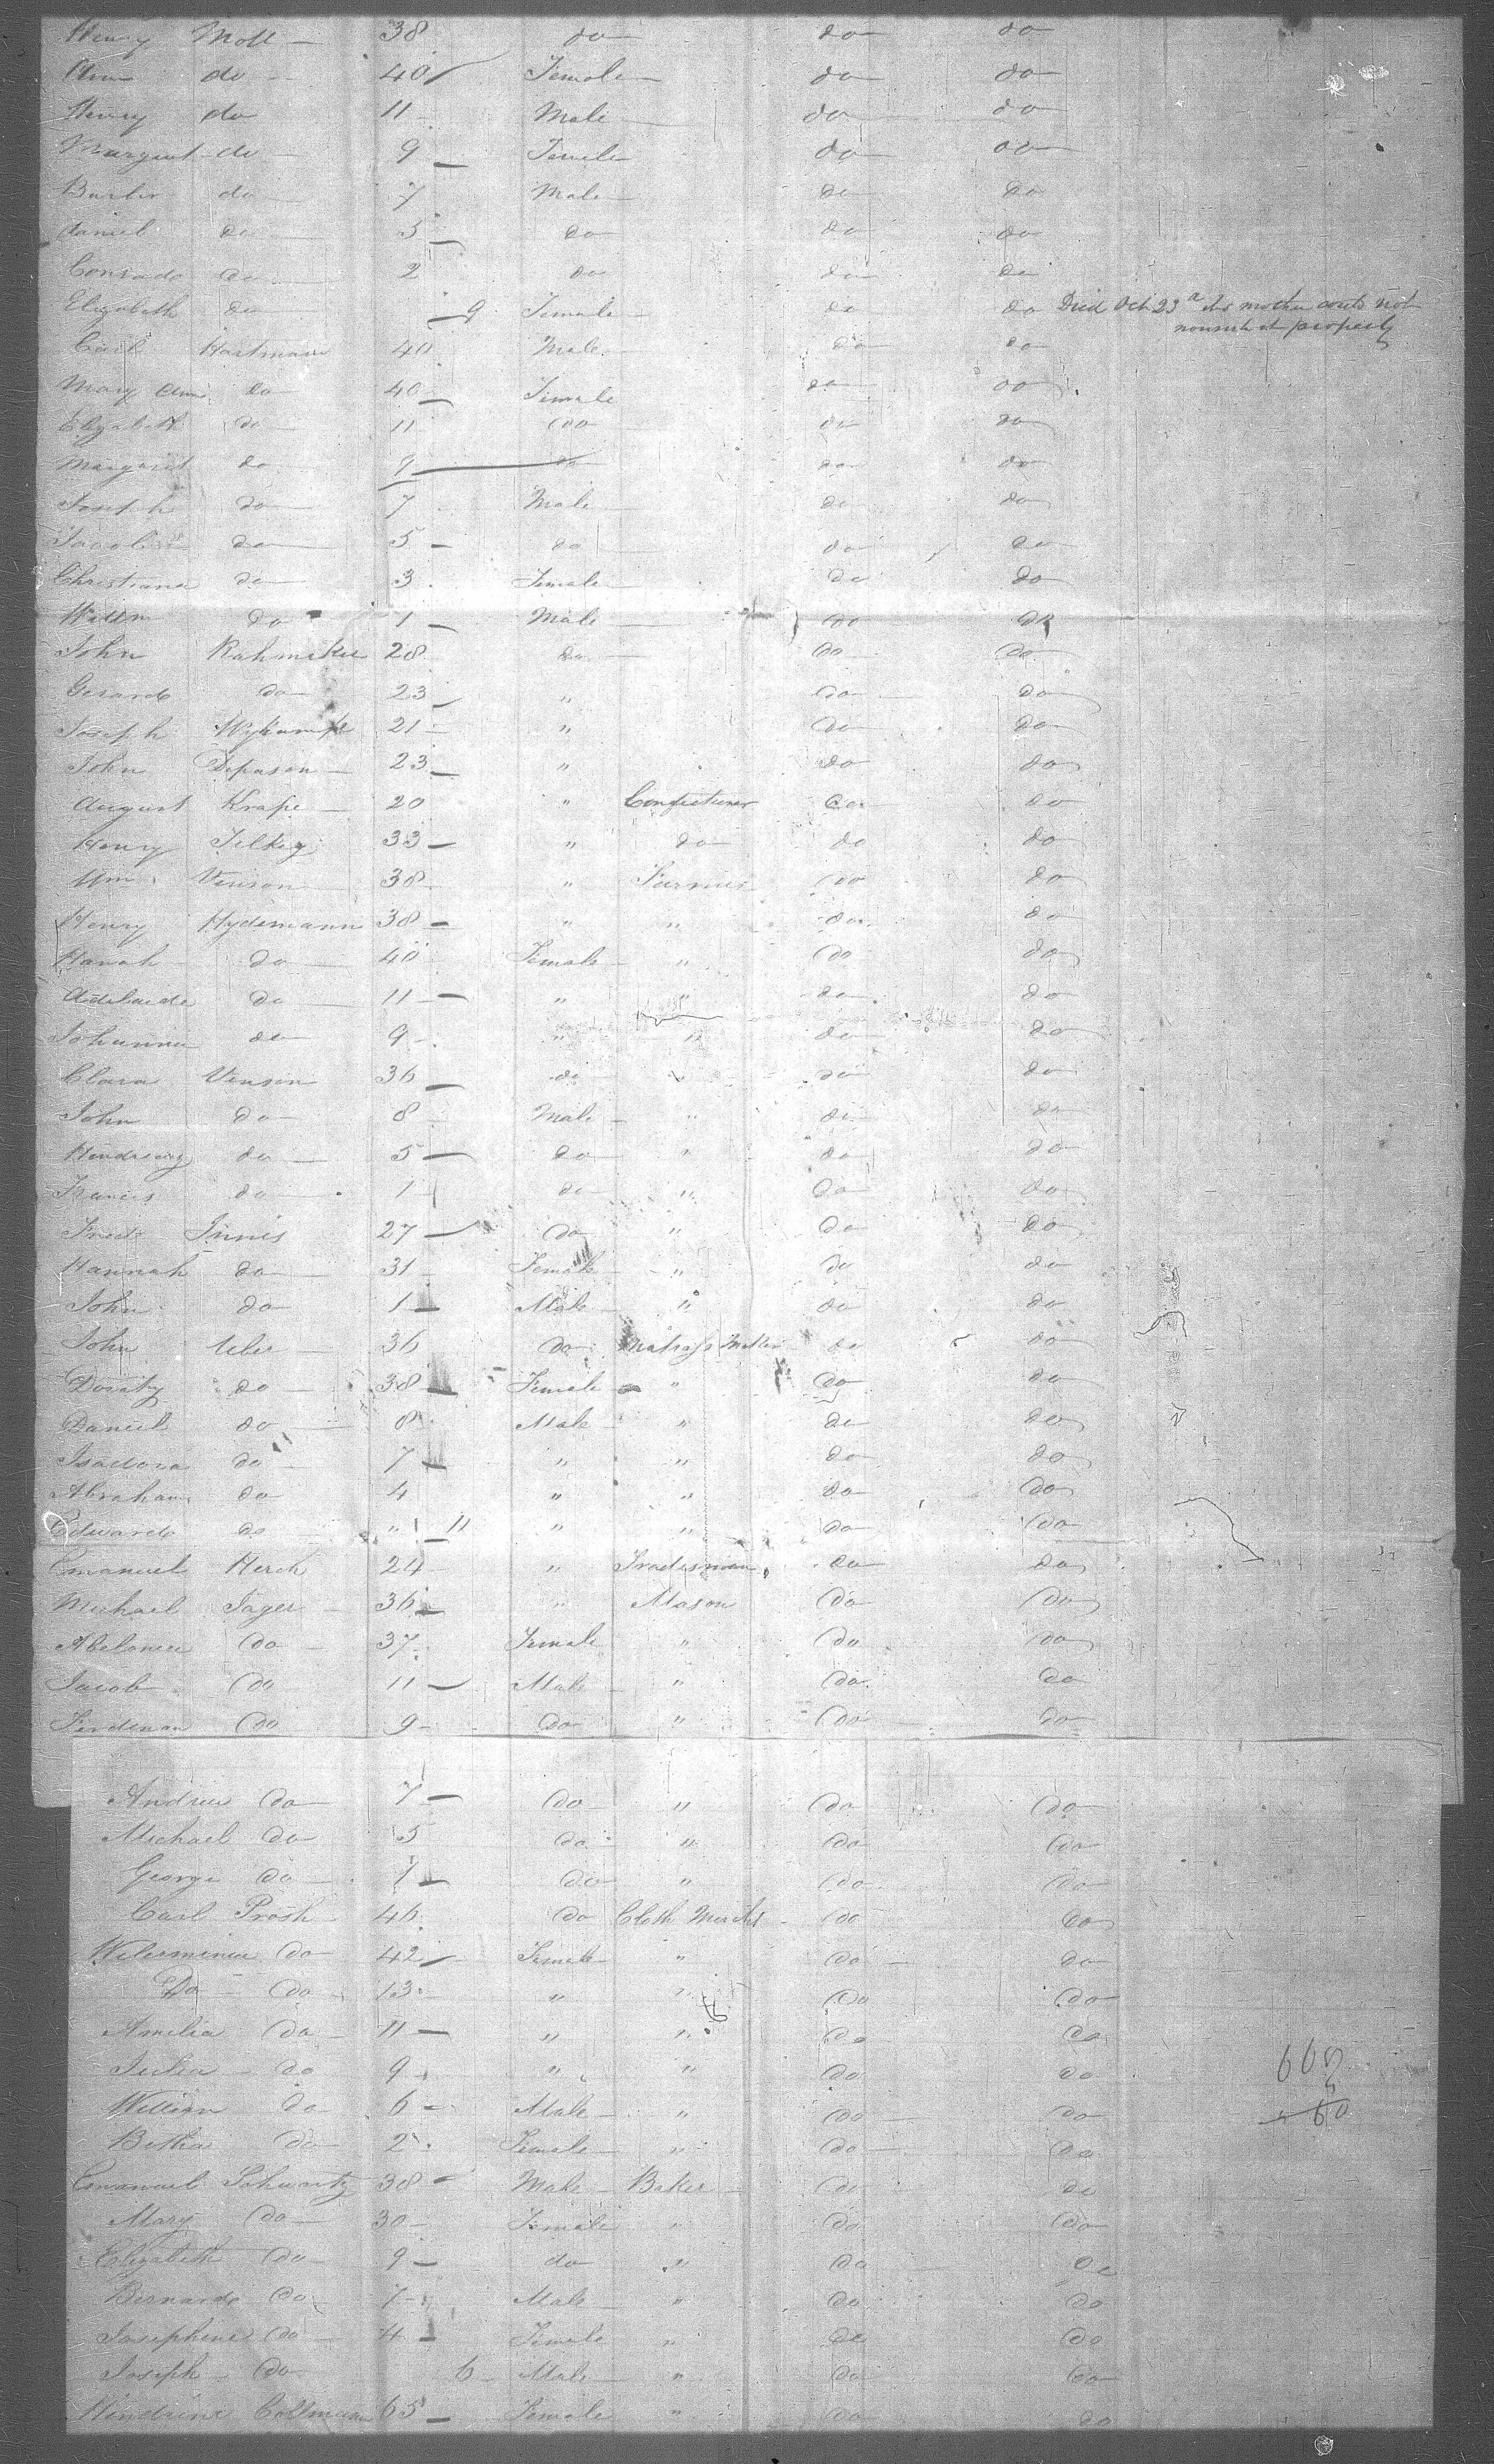 Henry Moll 38 do do do
Ann do 40 Female do do
Henry do 11 Male do do
Margaret do 9 Female do do
do 7 Male do do
Daniel do 5 do do do
Conrade do 2 do do do
Elizabeth do 9 Female do do Died Oct 23 its mother could not
nourish it properly
Carl Hartmann 40 Male do do
Mary Ann do 40 Female do do
Elizabeth do 11 do do do
Margaret do 9 do do do
Joseph do 7 Male do do
do 5 do do do
Christiana do 3 Female do do
Willm do 1 Male do do
John 28 do do do
Gerard do 23 " do do
Joseph 21 " do do
John Depason 23 " do do
August Krape 20 " Confectioner do do
Henry 33 " do do do
Wm Venson 38 " Farmer do do
Henry Hydemann 38 " " do do
Hanah do 40 Female " do do
Adelaide do 11 " " do do
Johanna do 9 " " do do
Clara Venson 36 do " do do
John do 8 Male " do do
do 5 do " do do
Francis do 1 do " do do
Fred Innis 27 do " do do
Hannah do 31 Female " do do
John do 1 Male " do do
John 36 do Matrass Maker do do
Doraty do 38 Female " do do
Daniel do 8 Male " do do
Isadora do 7 " " do do
Abraham do 4 " " do do
Edward do " 11 " " do do
Emanuel Herch 24 " Tradesman do do
Michael Jager 36 " Mason do do
do 37 Female " do do
Jacob do 11 Male " do do
Ferdinan do 9 do " do do
Andrew do 7 do " do do
Michael do 5 do " do do
George do 1 do " do do
Carl Prosh 46 do Cloth Mercht do do
Wilerminia do 42 Female " do do
Do do 13 " " do do
Amelia do 11 " " do do
Julia do 9 " " do do
William do 6 Male " do do
Betha do 2 Female " do do
Emanuel Schwartz 38 Male Baker do do
Mary do 30 Female " do do
Elizabeth do 9 do " do do
Bernard do 7 Male " do do
Josephine do 4 Female " do do
Joseph do 6 Male " do do
Hindrina Collmann 65 Female " do do